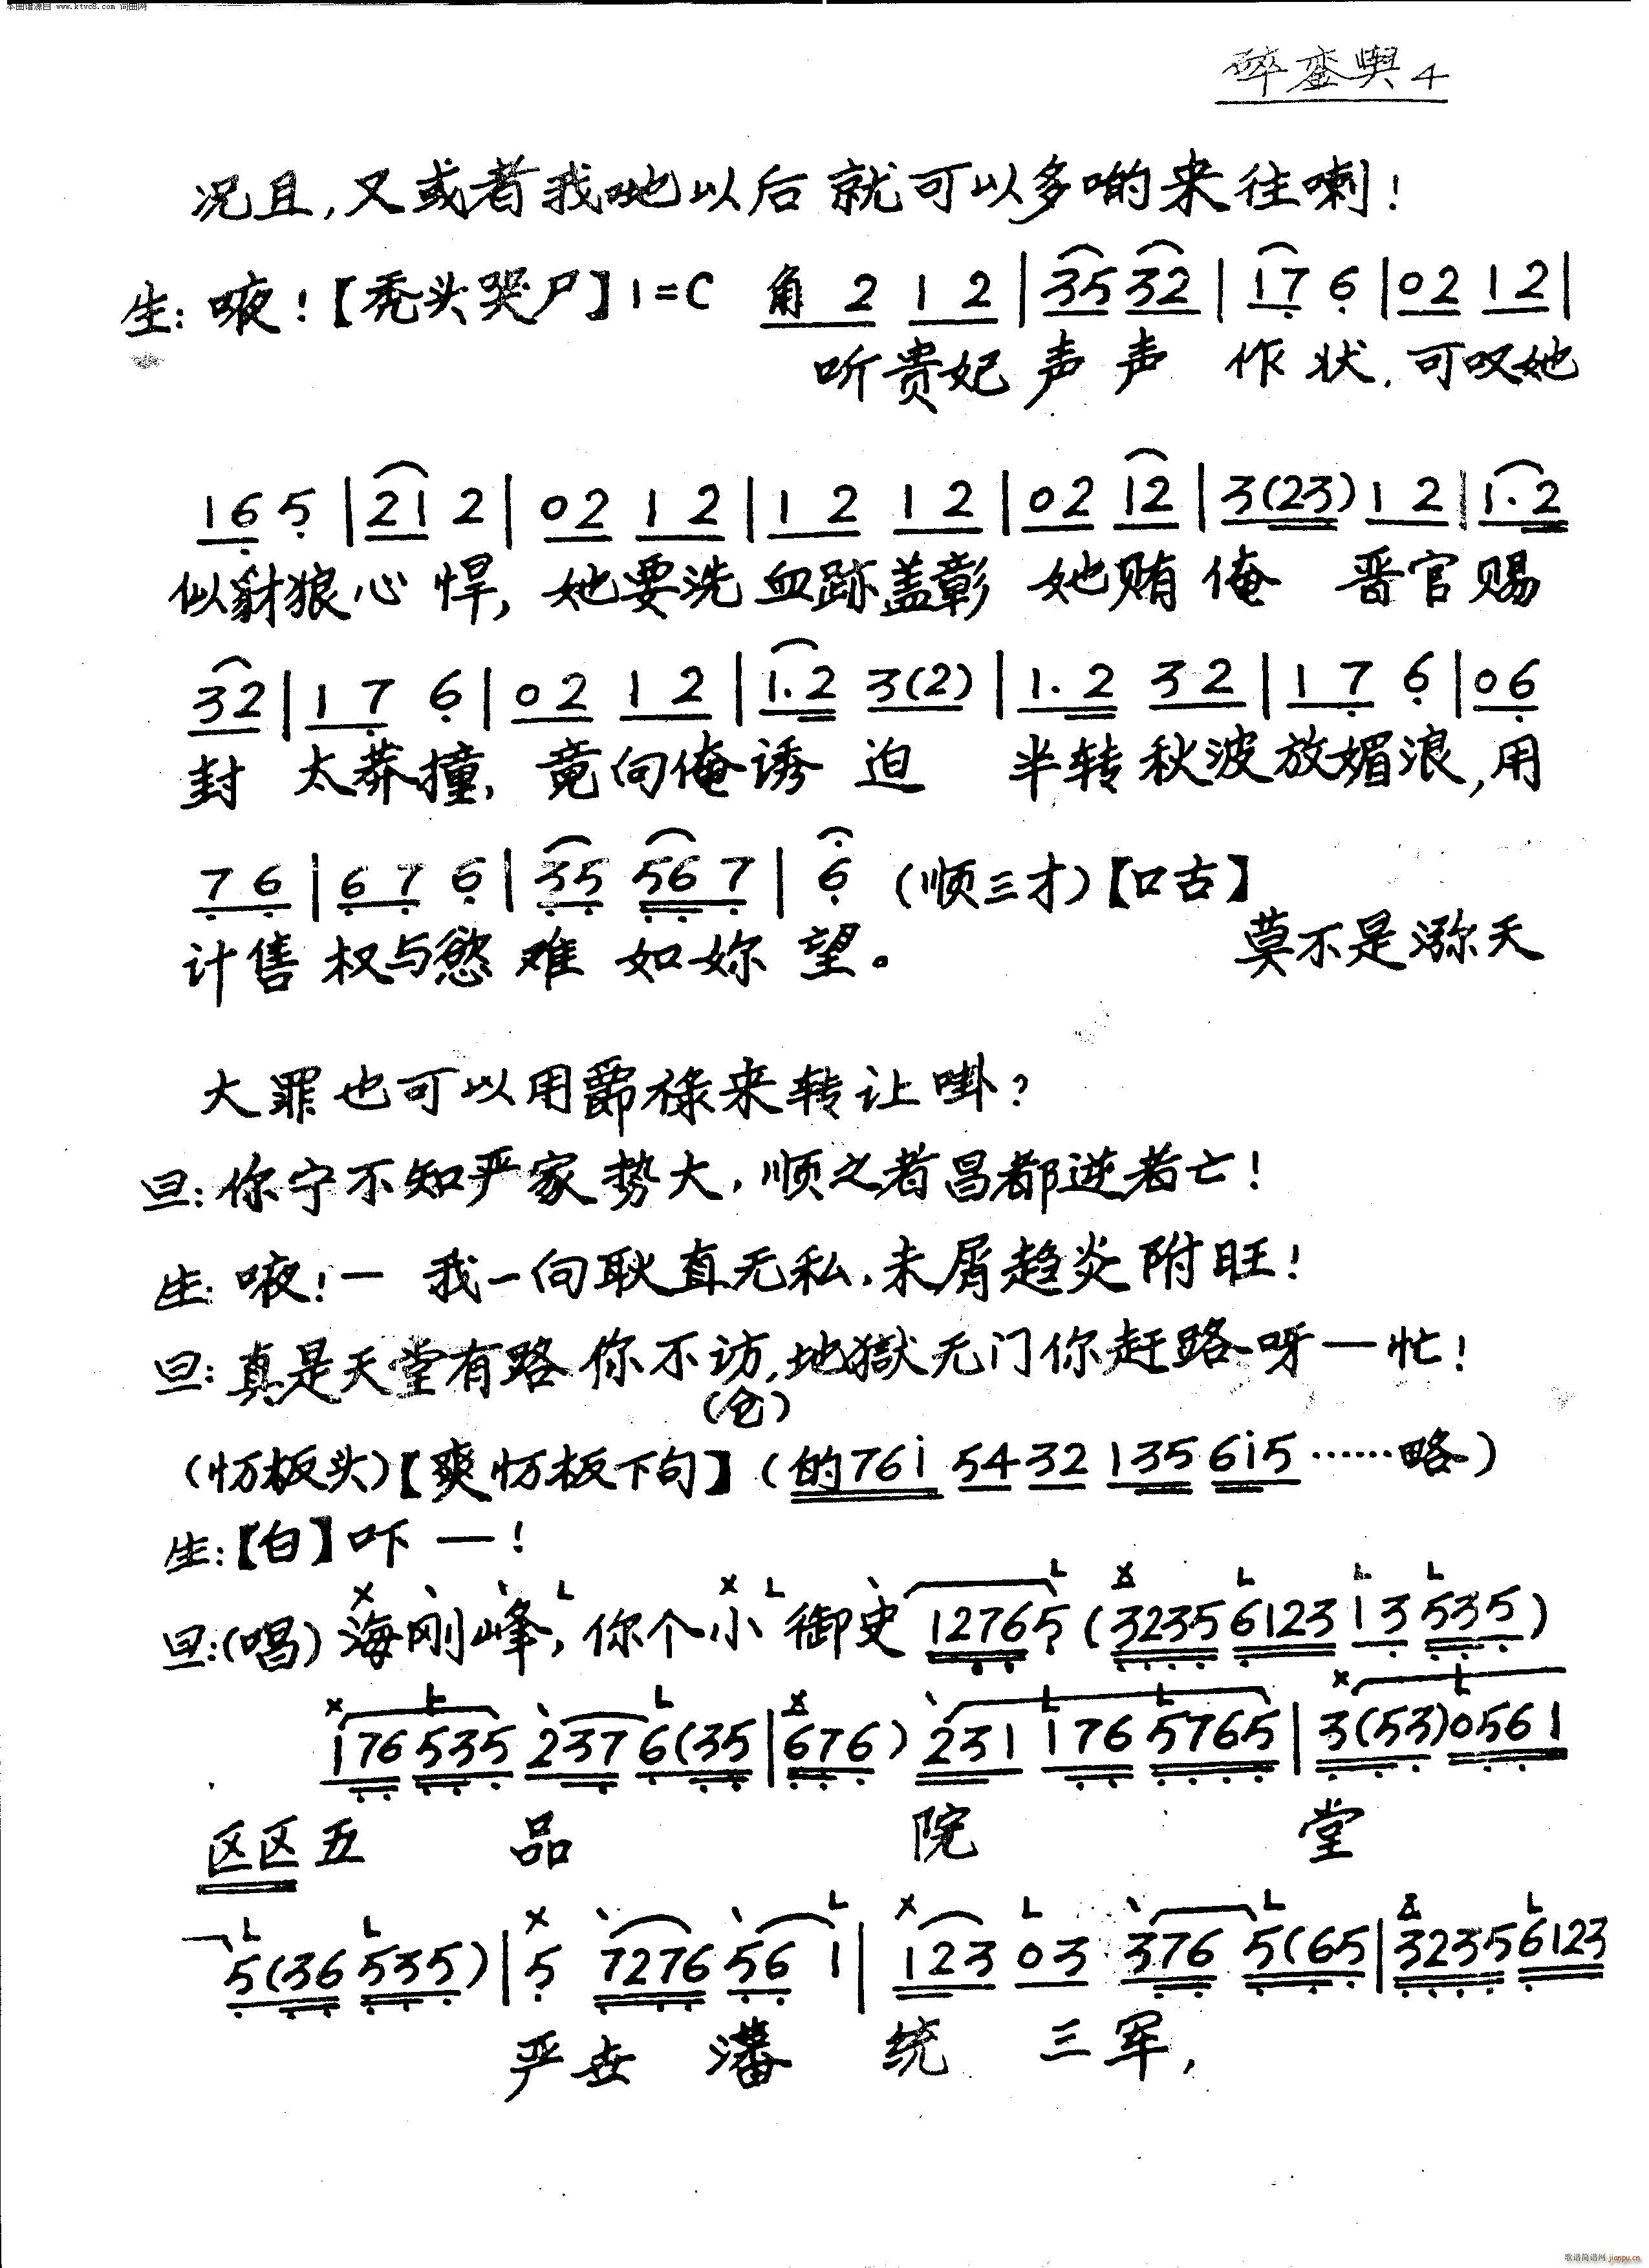 本曲谱源自 www.ktvc8.com 词曲网
碎銮舆 4
况且,又或者我哋以后就可以多啲来往喇!
生:嗌!【秃头哭尸】1=C 角 2 1 2 | 35 32 | 17 6 | 02 1 2 |
听贵妃声声作状,可叹她
16 5 | 21 2 | 02 1 2 | 1 2 1 2 | 02 12 | 3(23) 1 2 | 1.2
似豺狼心悍,她要洗血跡盖彰 她贿俺 晋官赐
32 | 1 7 6 | 02 1 2 | 1.2 3(2) | 1.2 32 | 1 7 6 | 06
封 太莽撞,竟向俺诱迫 半转秋波放媚浪,用
7 6 | 6 7 6 | 35 56 7 | 6 (顺三才)【口古】
计售权与慾难如妳望。 莫不是滁天
大罪也可以用爵禄来转让啩?
旦:你宁不知严家势大,顺之者昌都逆者亡!
生:嗌!一 我一向耿直无私,未屑趋炎附旺!
旦:真是天堂有路你不访,地獄无门你赶路呀一忙!
(仓)
(忟板头)【爽忟板下句】(的76i 54 32 135 6i5 ……略)
生:【白】吓 一!
旦:(唱)海刚峰,你个小御史 12765 (3235 6123 13 535)
176 535 237 6(35 | 676) 231 176 5765 | 3(53) 0561
区区五 品 院 堂
5(36 535) | 5 7276 56 1 | 123 03 376 5(65 | 3235 6123
严世 潘 统 三军,
歌谱简谱网 jianpu.cn